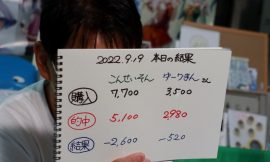 2022.9.19 本日の結果
こんせいそん ゆーりまんさん
購入 7,700 3,500
的中 5,100 2980
結果 -2,600 -520